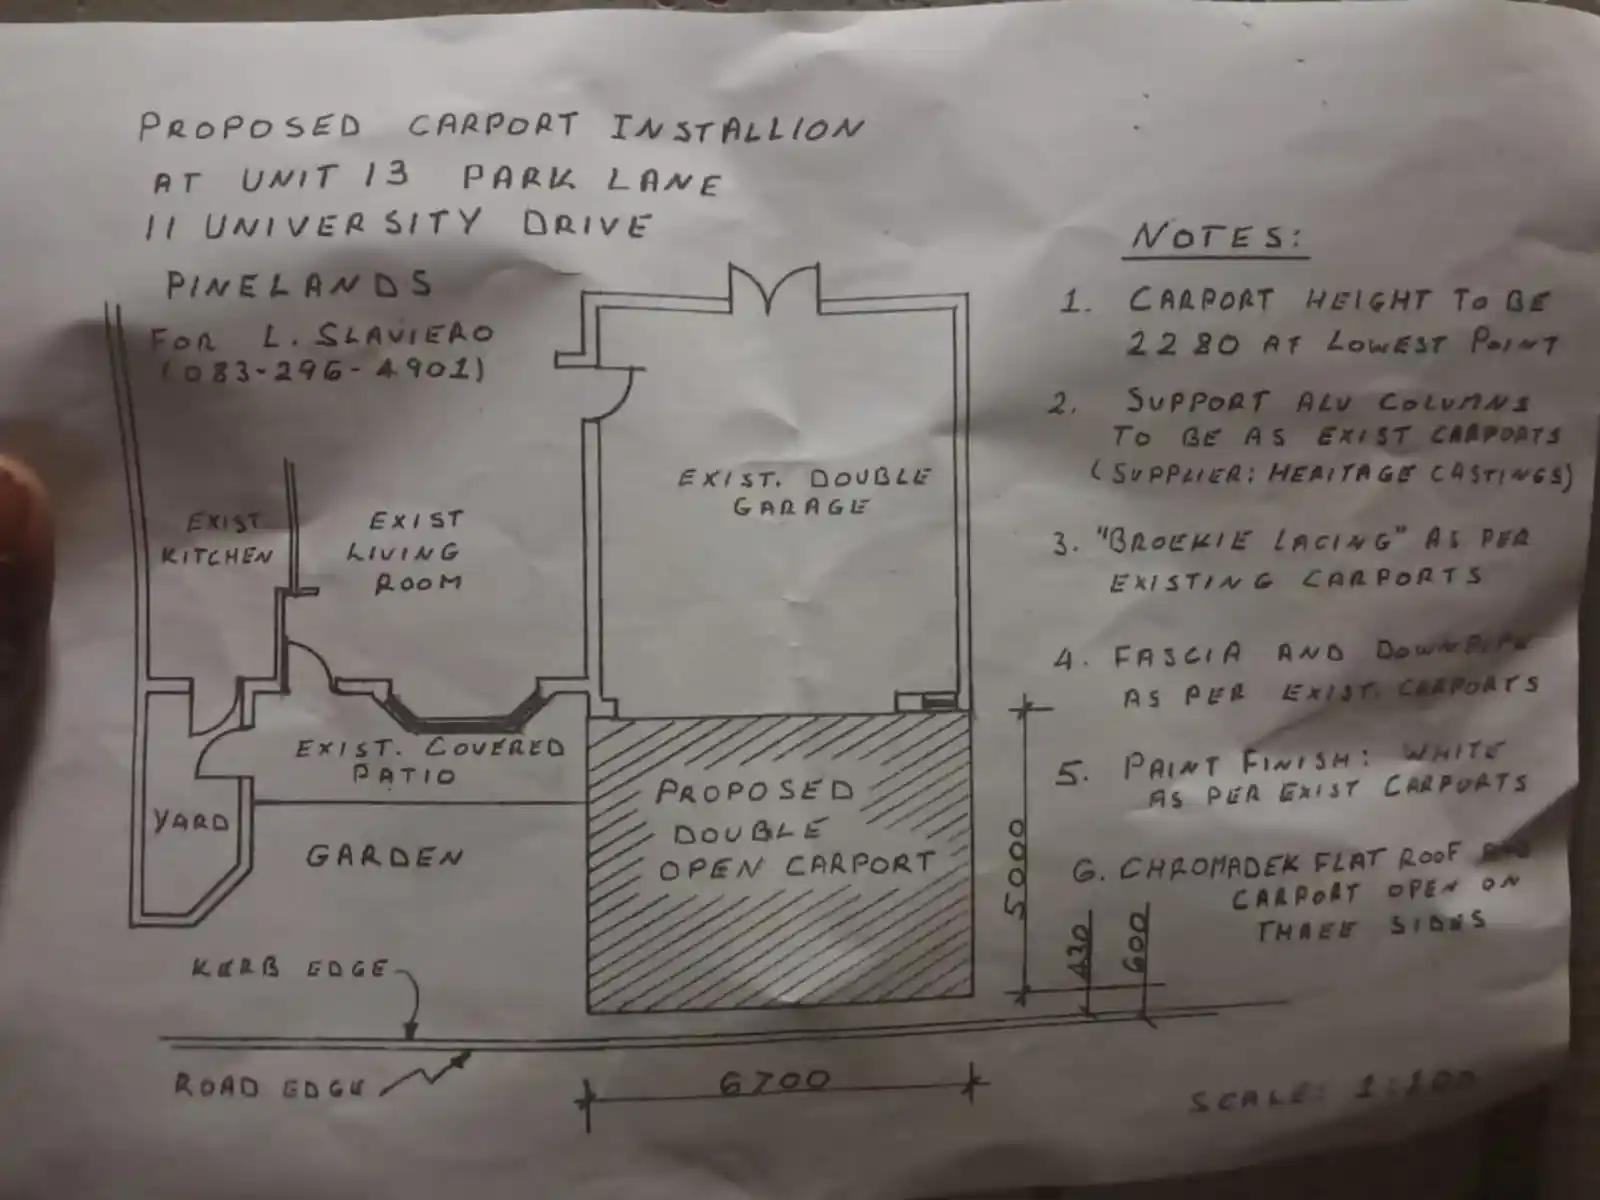 PROPOSED CARPORT INSTALLION
AT UNIT 13 PARK LANE
11 UNIVERSITY DRIVE
PINELANDS
FOR L. SLAVIERO
(083-296-4901)
EXIST
KITCHEN
EXIST
LIVING
ROOM
EXIST. DOUBLE
GARAGE
EXIST. COVERED
PATIO
YARD
GARDEN
PROPOSED
DOUBLE
OPEN CARPORT
KERB EDGE
ROAD EDGE
6700
5000
430
600
NOTES:
1. CARPORT HEIGHT TO BE
2280 AT LOWEST POINT
2. SUPPORT ALU COLUMNS
TO BE AS EXIST CARPORTS
(SUPPLIER: HERITAGE CASTINGS)
3. "BROEKIE LACING" AS PER
EXISTING CARPORTS
4. FASCIA AND
AS PER EXIST. CARPORTS
5. PAINT FINISH: WHITE
AS PER EXIST CARPORTS
6. CHROMADEK FLAT ROOF AND
CARPORT OPEN ON
THREE SIDES
SCALE: 1:100